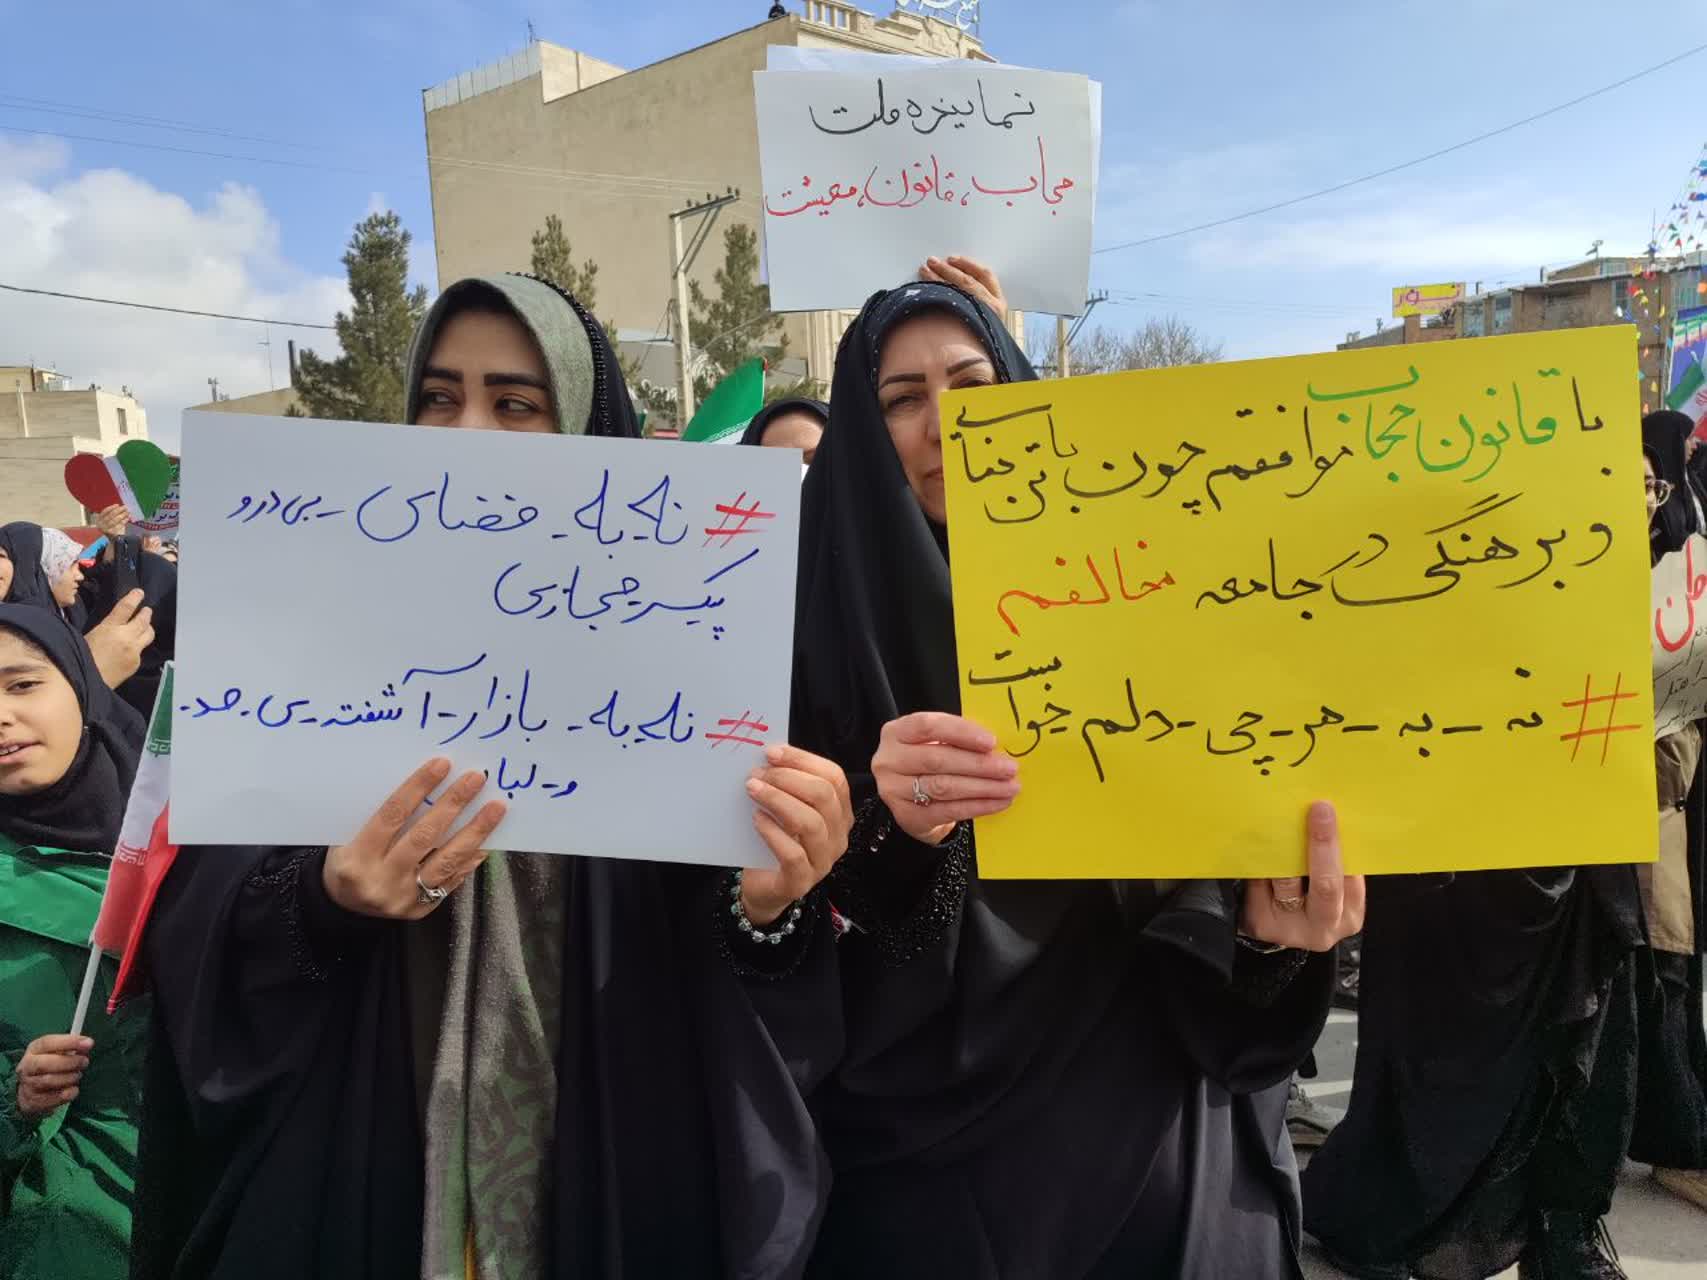 نماینده ملت
حجاب، قانون، معیشت
#نه_به_فضای_بی‌درو
پیکر_مجازی
#نه_به_بازار_آشفته_ی_مد
و_لبا
با قانون حجاب موافقم چون با تن نمایی
و برهنگی در جامعه مخالفم
#نه_به_هر_چی_دلم خواست
نور